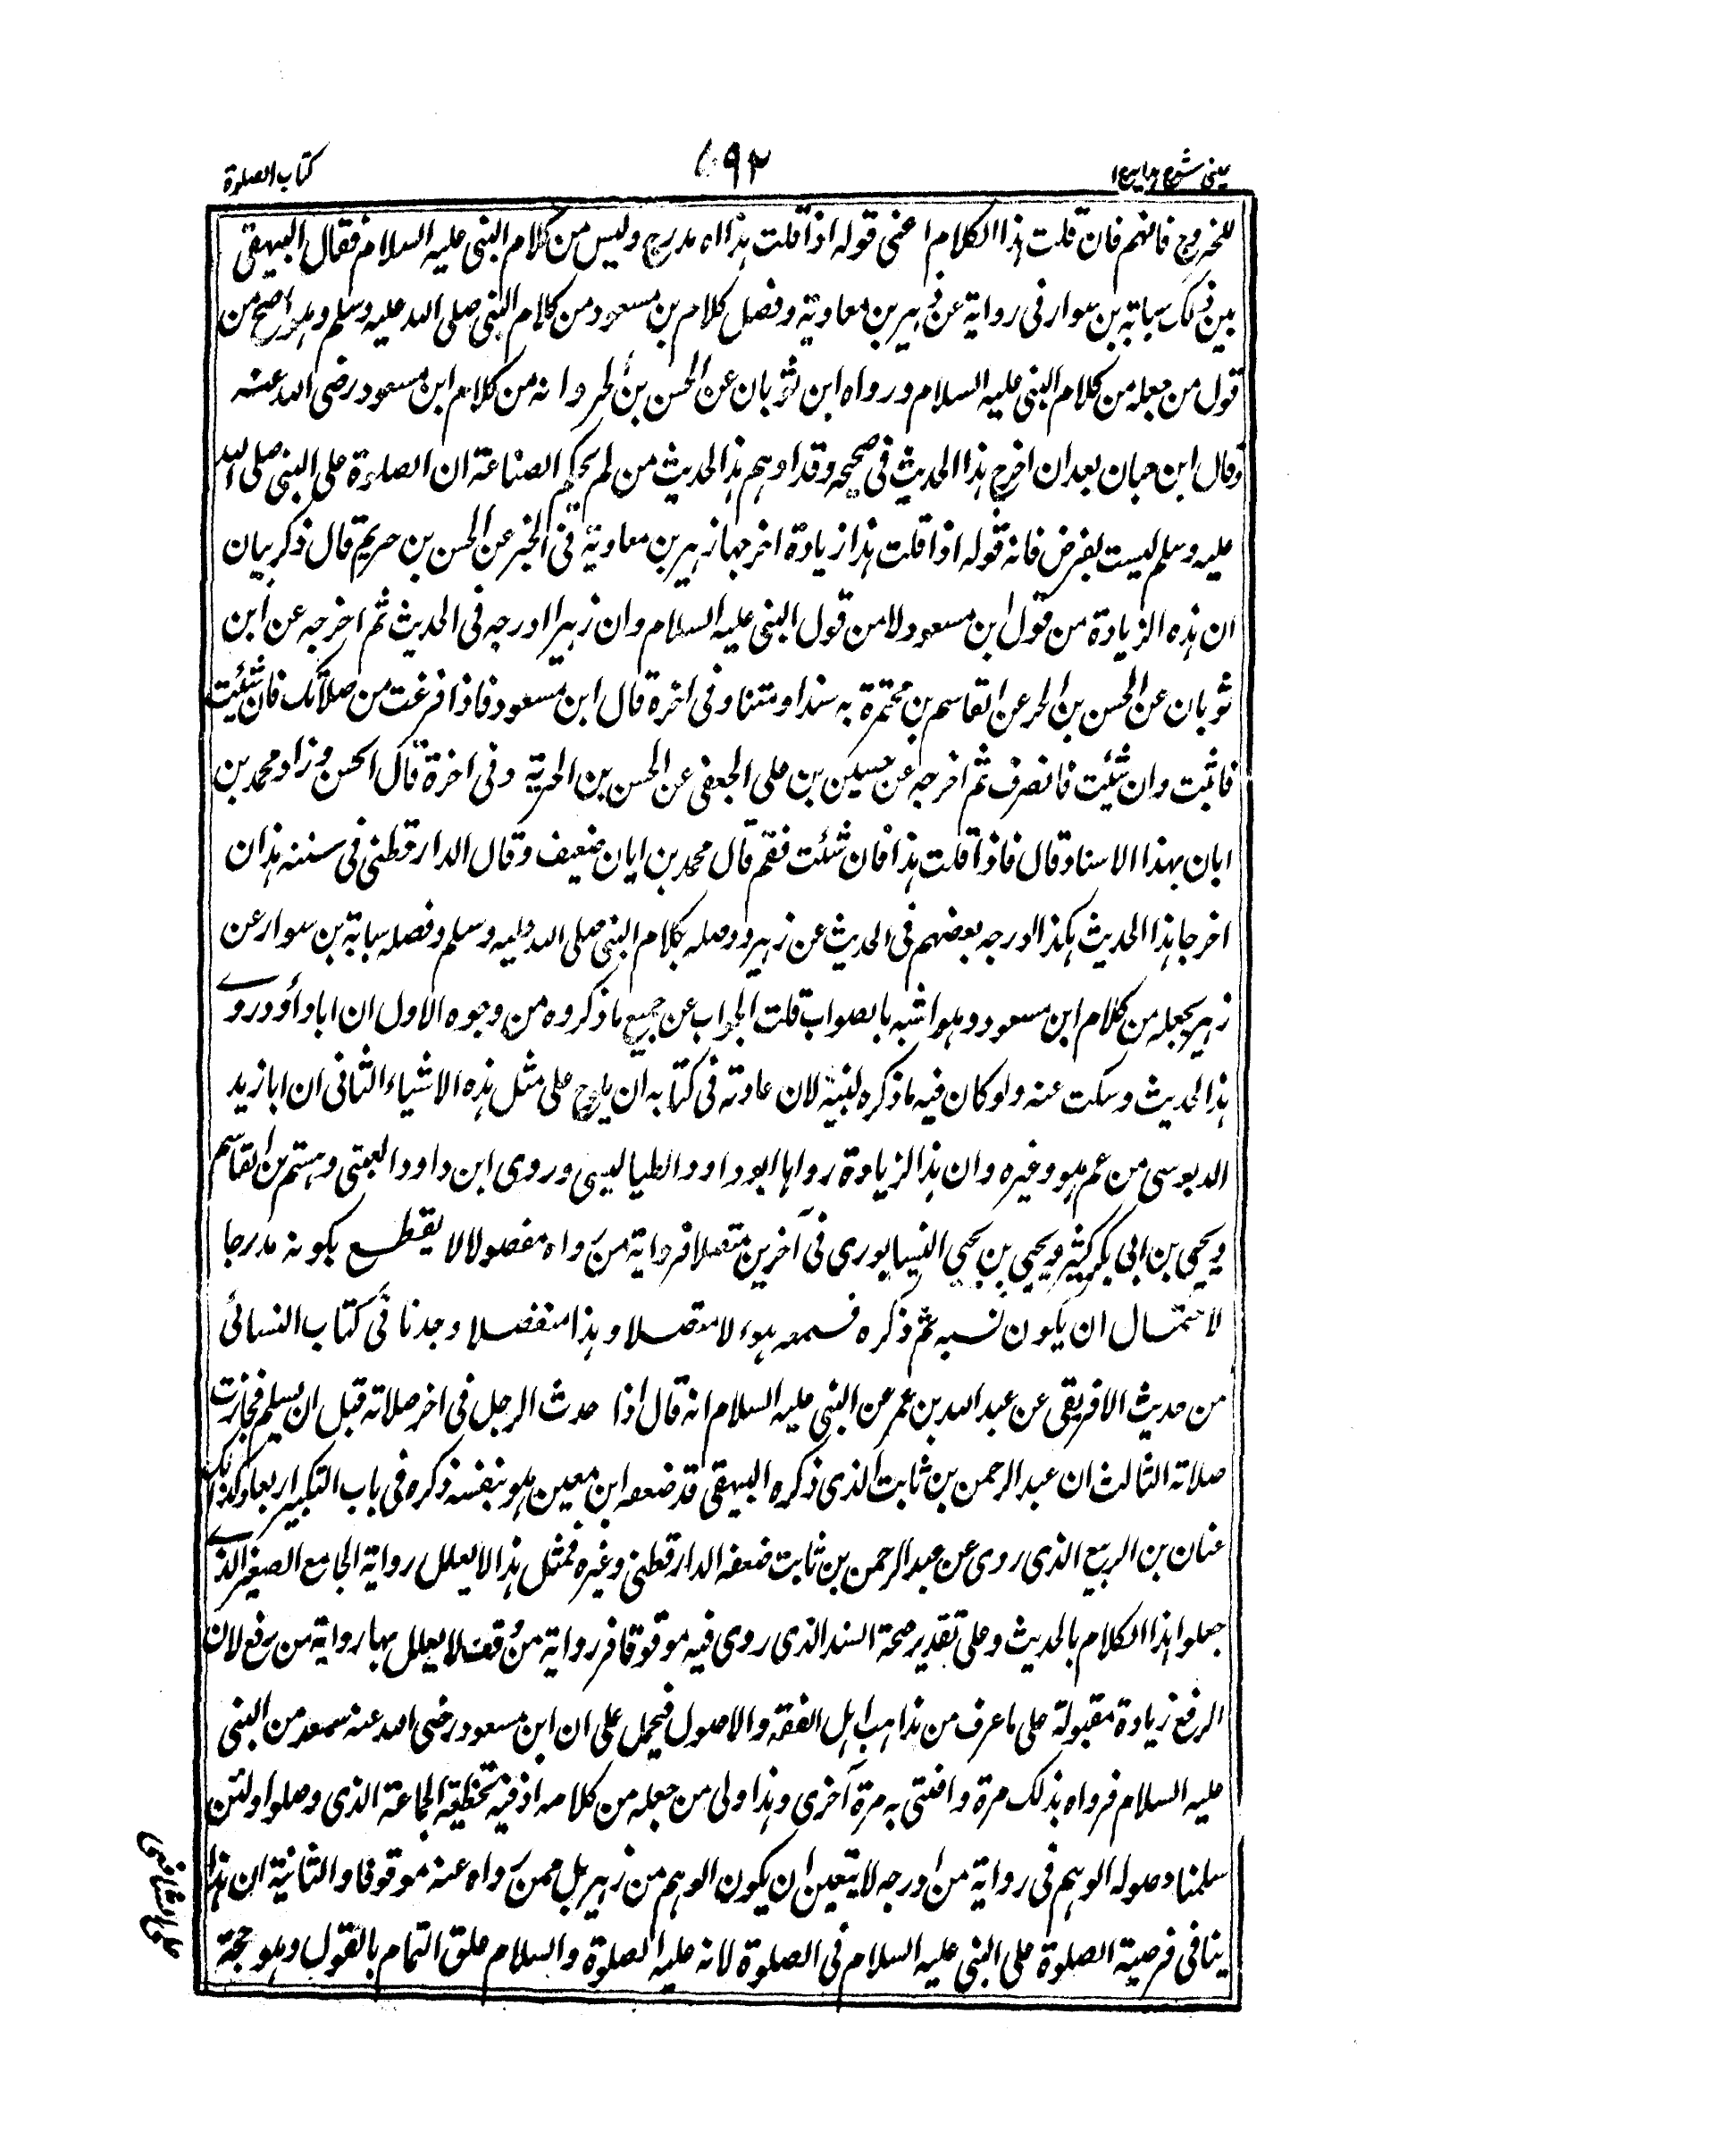 عینی شرح ہدایہ ج ا
۶۹۲
کتاب الصلوة
للخروج فافهم فان قلت هذا الكلام اعنى قوله اذا قلت هذا اه مدرج وليس من كلام النبى عليه السلام فقال البيهقى
بين ذلك سبابة بن سوار فى رواية عن زهير بن معاوية وفصل كلام بن مسعود من كلام النبى صلى الله عليه وسلم وهو اصح من
قول من جعله من كلام النبى عليه السلام ورواه ابن ثوبان عن الحسن بن الحر وانه من كلام ابن مسعود رضى الله عنه
وقال ابن حبان بعد ان اخرج هذا الحديث فى صحيحه وقد اوهم هذا الحديث من لم يحكم الصناعة ان الصلوة على النبى صلى الله
عليه وسلم ليست بفرض فانه قوله اذا قلت هذا زيادة اخرجها زهير بن معاوية فى الخبر عن الحسن بن حريم قال ذكر بيان
ان هذه الزيادة من قول ابن مسعود لا من قول النبى عليه السلام وان زهيرا ادرجه فى الحديث ثم اخرجه عن ابن
ثوبان عن الحسن بن الحر عن القاسم بن مخيمرة به سندا ومتنا وفى اخرة قال ابن مسعود فاذا فرغت من صلاتك فان شئيت
فاثبت وان شئيت فانصرف ثم اخرجه عن حسين بن على الجعفى عن الحسن بن الحر به وفى اخرة قال الحسن وزاد محمد بن
ابان بهذا الاسناد قال فاذا قلت هذا فان شئت فقم قال محمد بن ابان ضعيف وقال الدارقطنى فى سننه هذان
اخرجا هذا الحديث هكذا ادرجه بعضهم فى الحديث عن زهير ووصله بكلام النبى صلى الله عليه وسلم وفصله سبابة بن سوار عن
زهير يجعله من كلام ابن مسعود وهو اشبه بالصواب قلت الجواب عن جميع ما ذكروه من وجوه الاول ان ابا داؤد روے
هذا الحديث وسكت عنه ولو كان فيه ما ذكره لنبيه لان عادته فى كتابه ان يلوح على مثل هذه الاشياء الثانى ان ابا زيد
الدبوسى من عم هو وغيره وان هذا الزيادة رواها ابو داود الطيالسى وروى ابن داود العبتى وهشم بن القاسم
ويحيى بن ابى بكر كثير ويحيى بن يحيى النيسابورى فى آخرين متصلا فرواية من رواه مفصولا لا يقطع بكونه مدرجا
لاحتمال ان يكون نسيه ثم ذكره فسمعه هؤلا متصلا وهذا منفصلا وجدنا فى كتاب النسائى
من حديث الافريقى عن عبد الله بن عمر عن النبى عليه السلام انه قال اذا حدث الرجل فى اخر صلاته قبل ان يسلم فجازت
صلاته الثالث ان عبد الرحمن بن ثابت الذى ذكره البيهقى قد ضعفه ابن معين هو بنفسه ذكره فى باب التكبير اربعا وكذلك
غسان بن الربيع الذى روى عن عبد الرحمن بن ثابت ضعفه الدارقطنى وغيره فمثل هذا لا يعلل رواية الجامع الصغير الذے
جعلوا هذا الكلام بالحديث وعلى تقدير صحة السند الذى روى فيه موقوفا فرواية من وقف لا يعلل بها رواية من رفع لان
الرفع زيادة مقبولة على ما عرف من مذاهب اهل الفقه والاصول فيحمل على ان ابن مسعود رضى الله عنه سمعه من النبى
عليه السلام فرواه بذلك مرة وافتى به مرة آخرى وهذا اولى من جعله من كلامه اذ فيه تخطيه الجماعة الذى وصلوا ولئن
سلمنا وصوله الوهم فى رواية من ادرجه لا يتعين ان يكون الوهم من زهير بل ممن رواه عنه موقوفا والثانية ان هذا
ينافى فرصية الصلوة على النبى عليه السلام فى الصلوة لانه عليه الصلوة والسلام علق التمام بالقول وهو حجة
على الشافعى